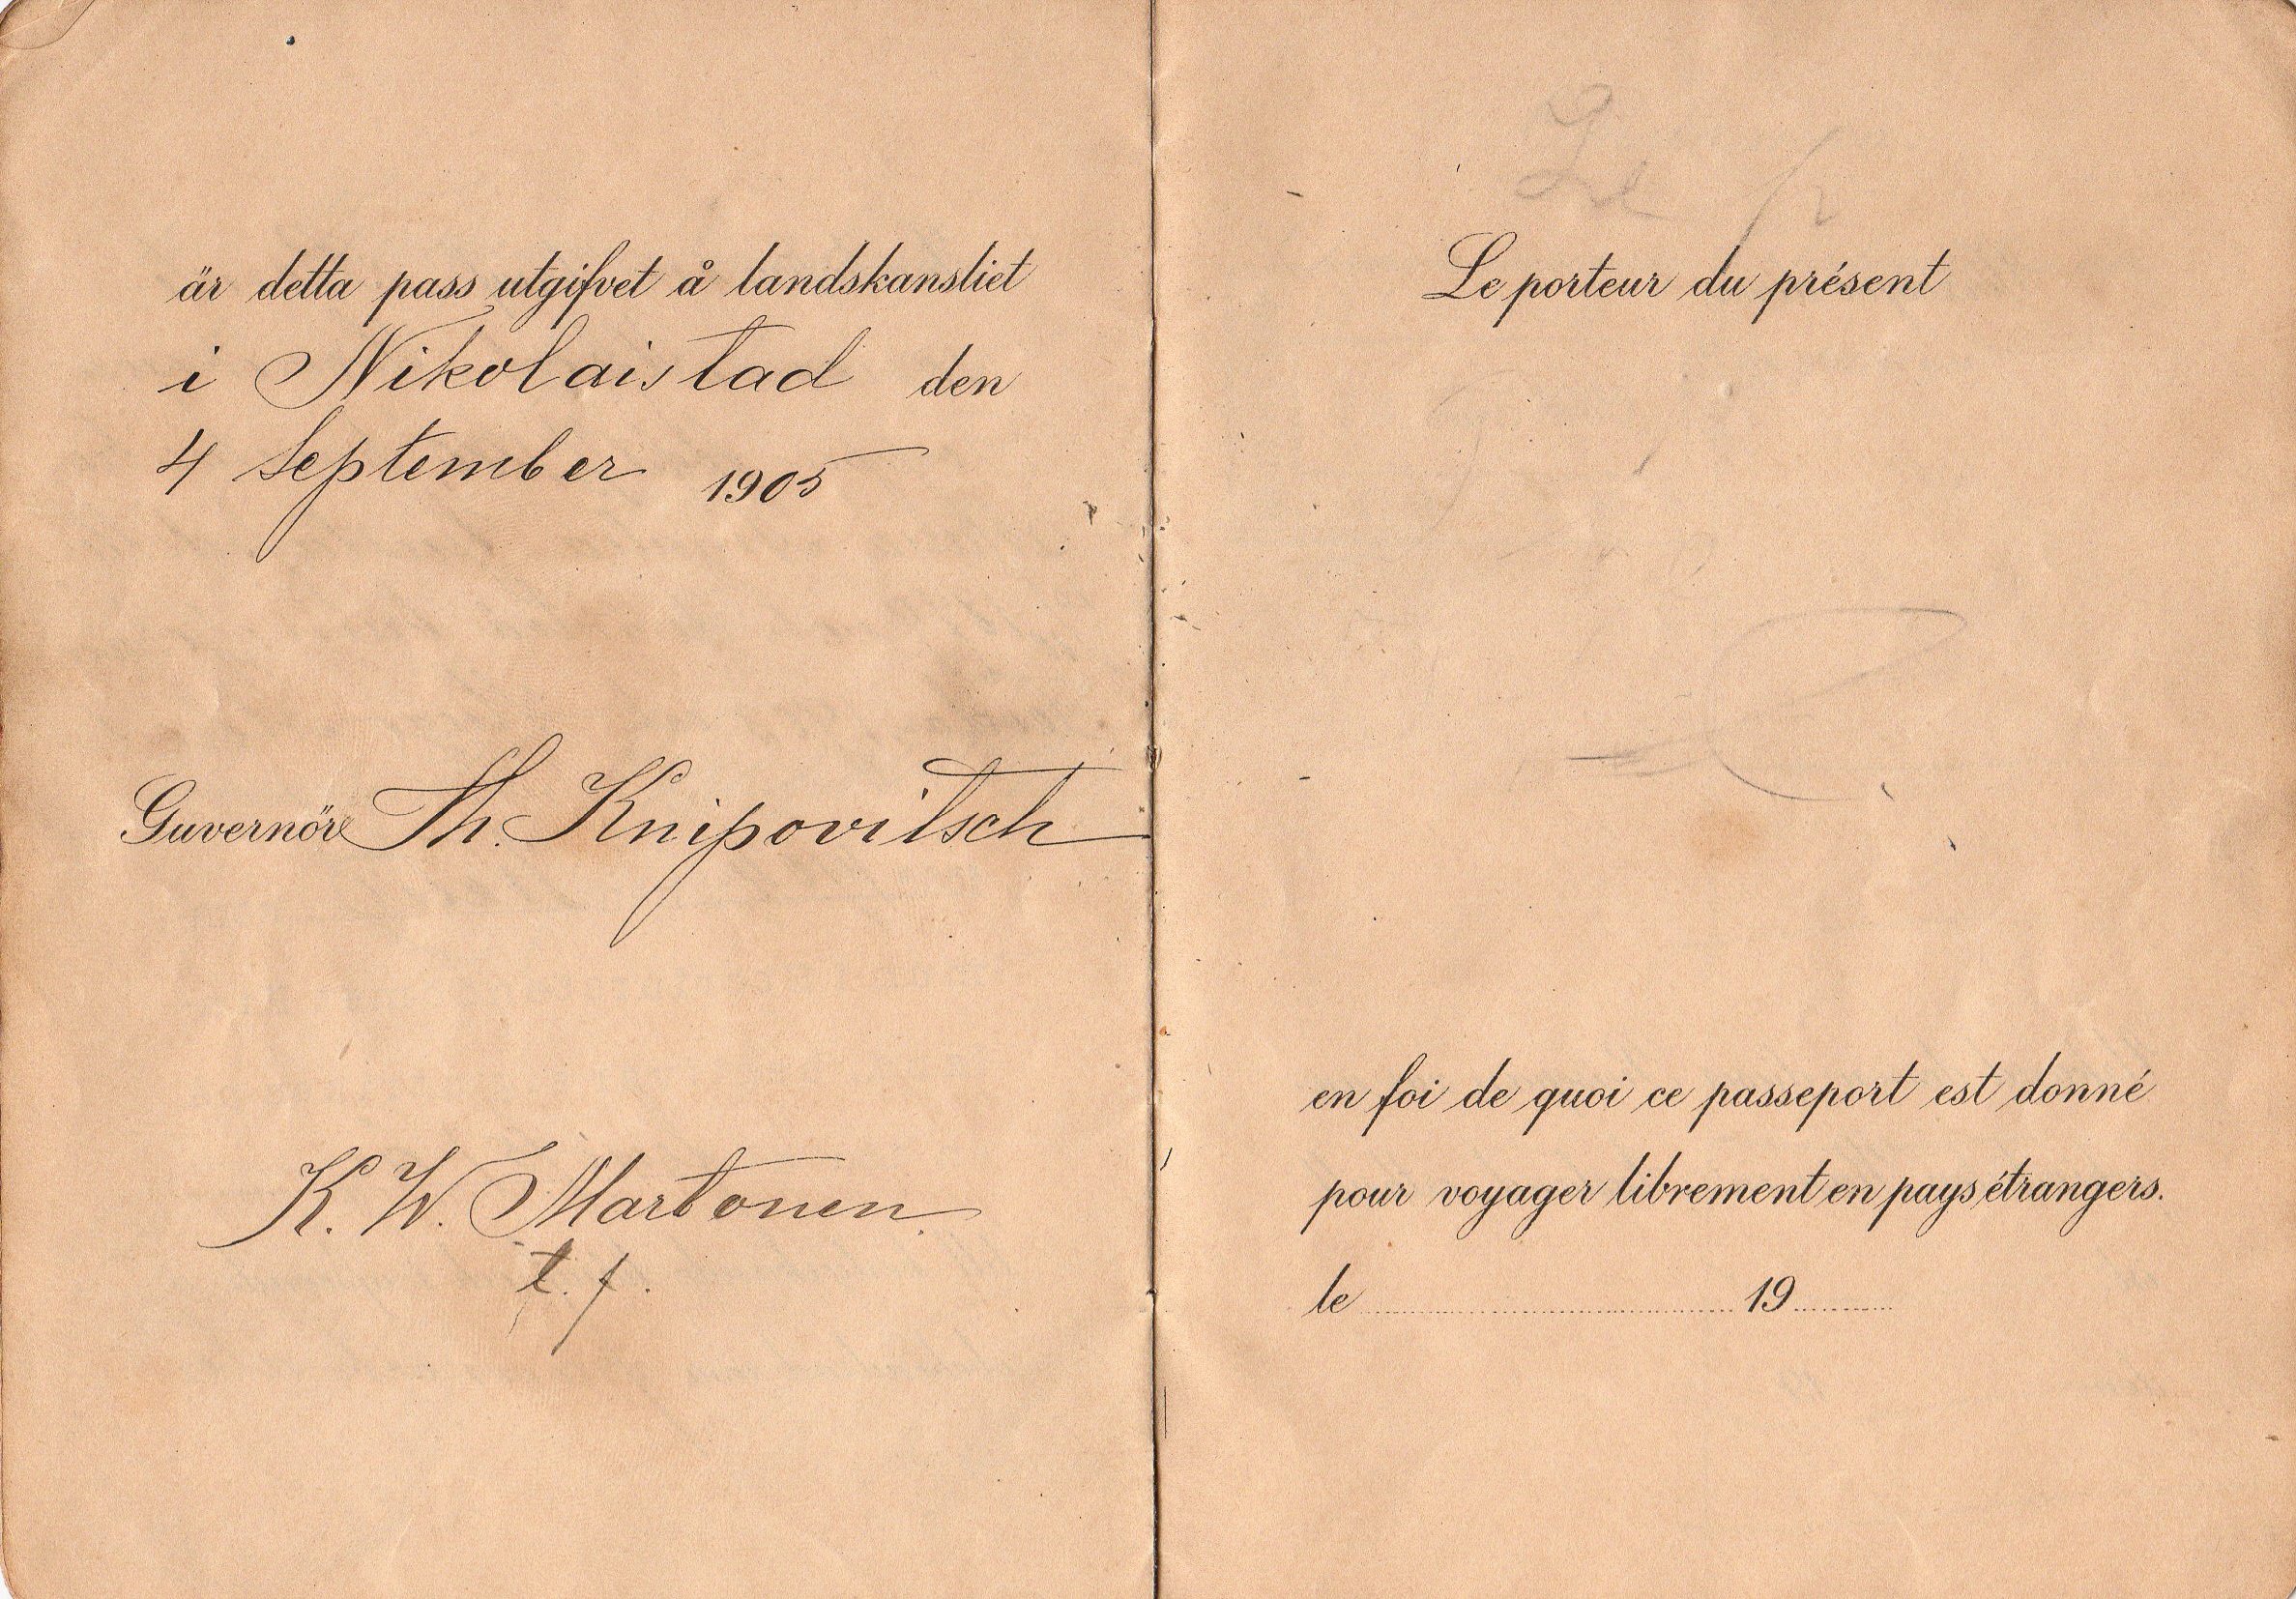 är detta pass utgifvet å landskansliet
i Nikolaistad den
4 September 1905
Guvernör Th. Knipovitsch
K. W. Martonen
t. f.
Le porteur du présent
en foi de quoi ce passeport est donné
pour voyager librement en pays étrangers.
le 19